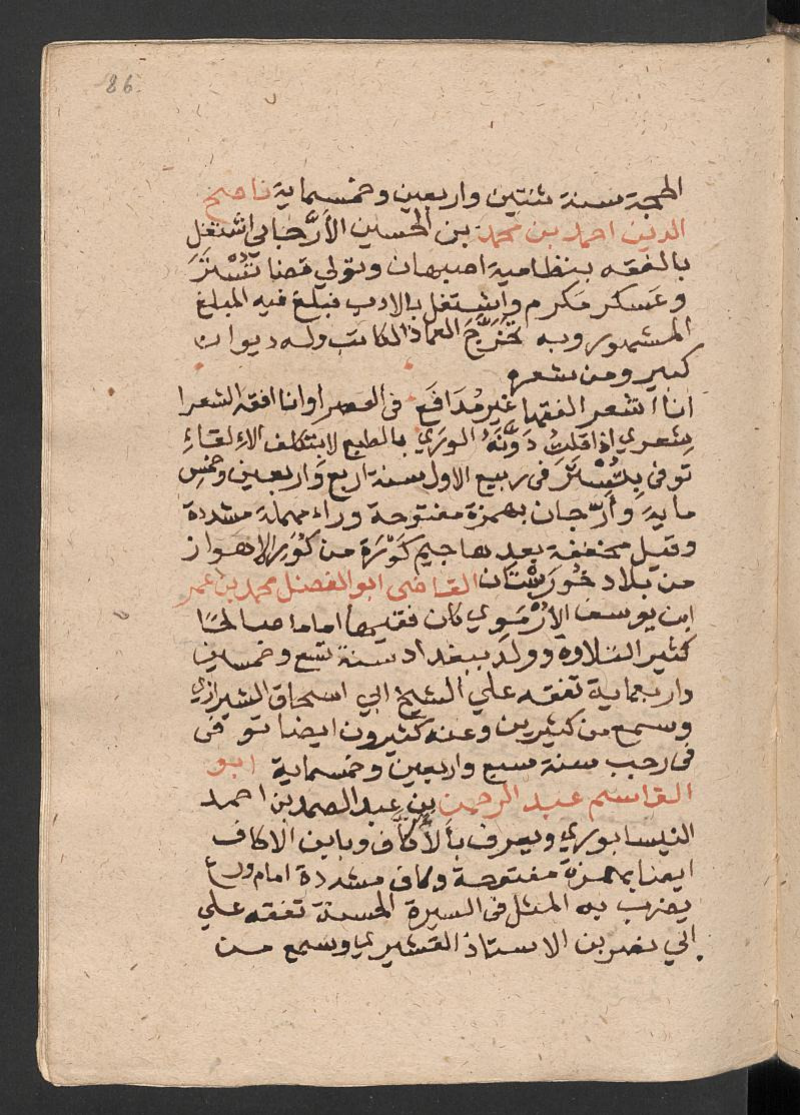 86
الحجة سنة ثنتين واربعين وخمسماية ناصح
الدين احمد بن محمد بن الحسين الأرَّجاني اشتغل
بالفقه بنظامية اصبهان وتولي قضا تُسْتَرَ
وعَسكر مَكرم واشتغل بالادب فبلغ فيه المبلغ
المشهور وبه تخرَّجَ العماد الكاتب وله ديوان
كبير ومن شعره
انا اشعر الفقها غير مُدَافَعٍ في العصر او انا افقه الشعرا
شعري اذا قلتُ دَوَّنَهُ الوري بالطبع لا بتكلف الالقاءِ
توفي بتُسْتَرَ في ربيع الاول سنة اربع واربعين وخمس
ماية وأرّجان بهمزة مفتوحة وراء مهملة مشددة
وقيل مخففة بعدها جيم كَوْرَة من كُوَر الاهواز
من بلاد خُورسْتَان القاضي ابو الفضل محمد بن عمر
ابن يوسف الأُرْمَوِي كان فقيها اماما صالحا
كثير التلاوة وولد ببغداد سنة تسع وخمسين
واربعماية تفقه علي الشيخ ابي اسحاق الشيرازي
وسمع من كثيرين وعنه كثيرون ايضا توفي
في رجب سنة سبع واربعين وخمسماية ابو
القاسم عبد الرحمن بن عبد الصمد بن احمد
النيسابوري ويعرف بالأكَّاف وبابن الاكاف
ايضا بهمزة مفتوحة وكاف مشددة امام ورع
يضرب به المثل في السيرة الحسنة تفقه علي
ابي نصر بن الاستاذ القشيري وسمع من